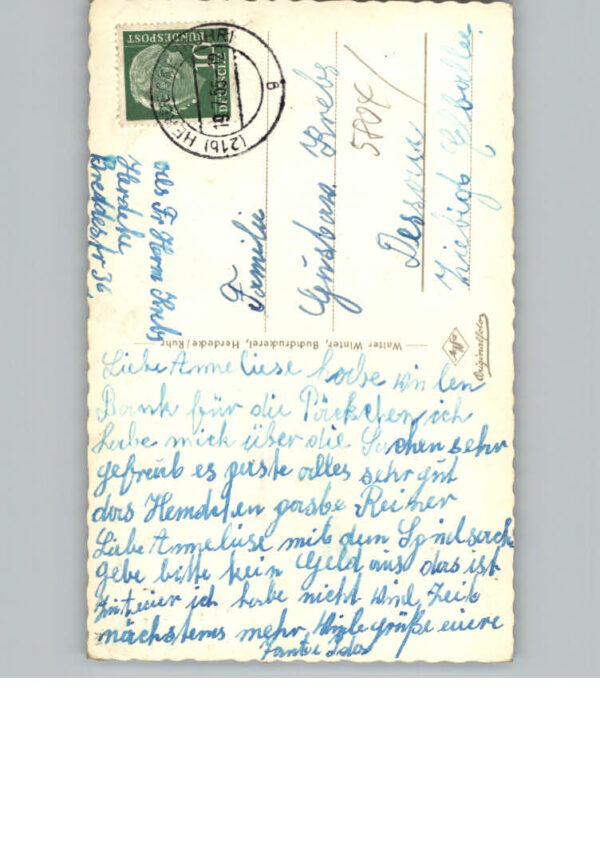 Liebe Anneliese habe vielen
Dank für die Päckchen ich
habe mich über die Sachen sehr
gefreub es paste alles sehr gut
das Hemdchen pasbe Reiner
Liebe Anneliese mit dem Spielsach
gebe bitte kein Geld aus das ist
zu teuer ich habe nicht viel Zeit
nächstens mehr, Viele grüße euere
Tante Ida
Walter Winter, Buchdruckerei, Herdecke/Ruhr
Agfa
Originalfoto
Familie
Gustav Krebs
5804
Dessau
Ziebigk
abs Fr Herm Krebs
Herdeke
36
DEUTSCHE
BUNDESPOST
10
(21b) HERDECKE (RUHR)
19.7.55
a